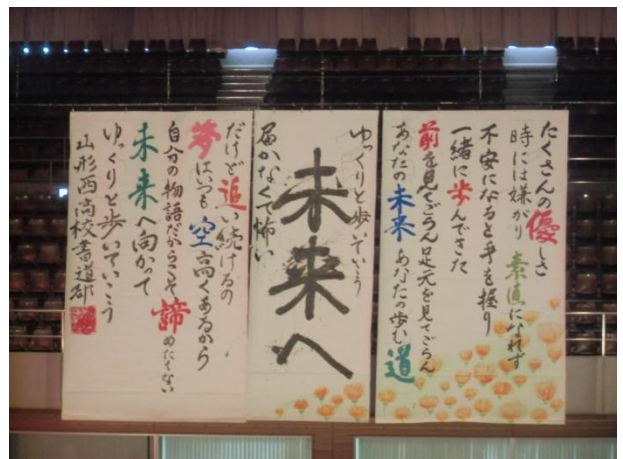 たくさんの優しさ
時には嫌がり素直になれず
不安になると手を握り
一緒に歩んできた
前を見てごらん足元を見てごらん
あなたの未来あなたの歩む道
ゆっくりと歩いていこう
未来へ
届かなくて怖い
だけど追い続けるの
夢はいつも空高くあるから
自分の物語だからこそ諦めたくない
未来へ向かって
ゆっくりと歩いていこう
山形西高校書道部